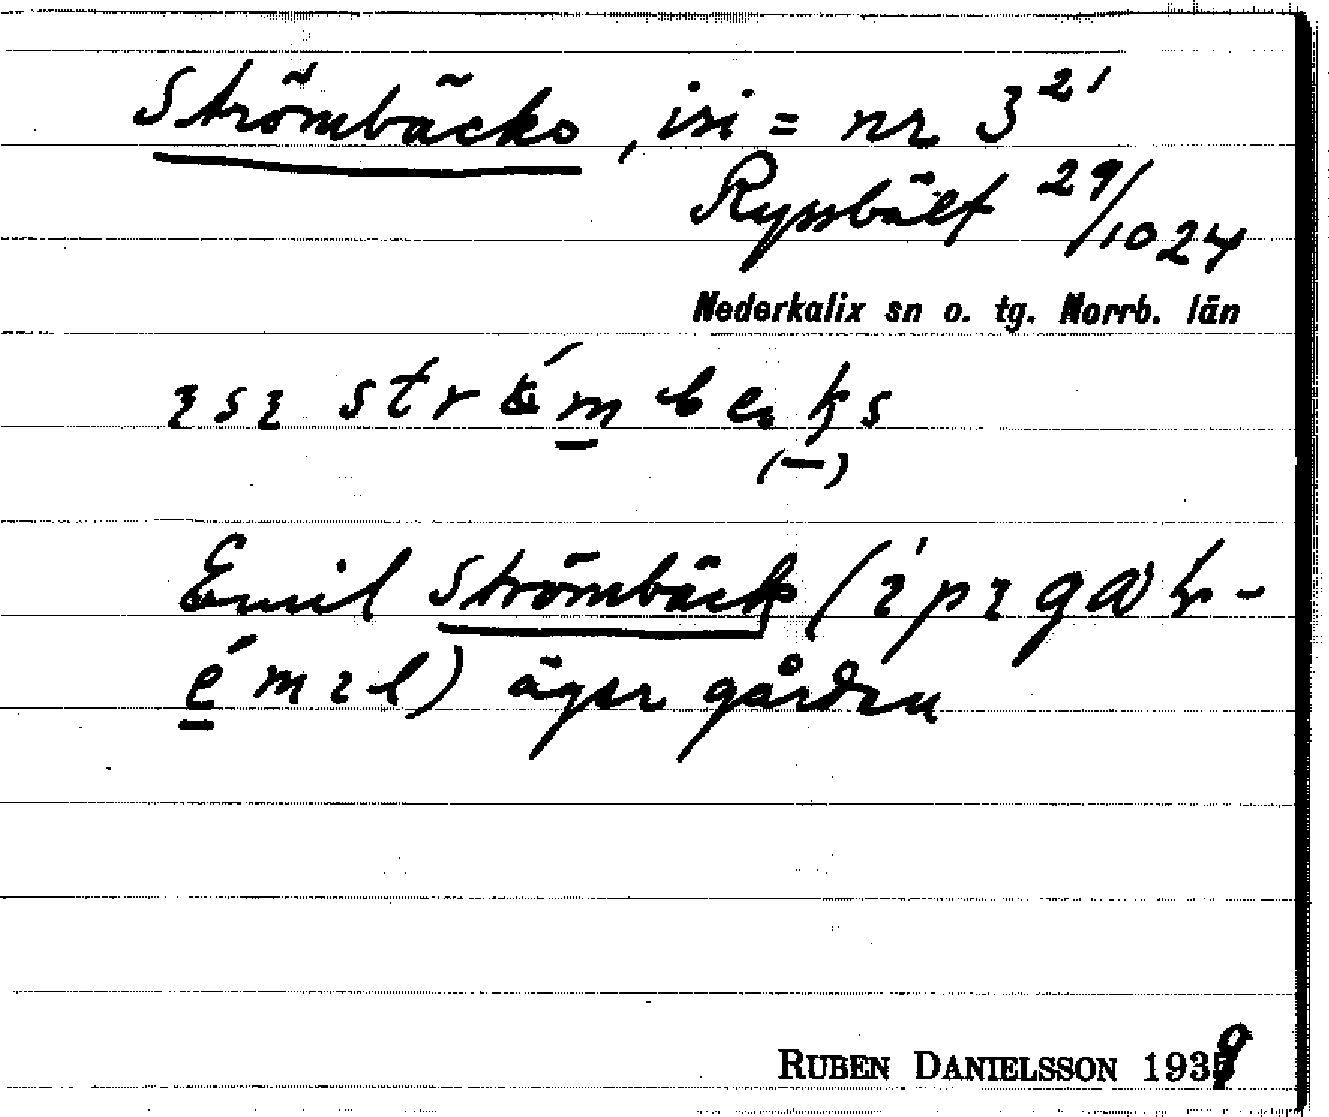 Strömbäcks, isi = nr 3²¹
Ryssbält 29/10 24
Nederkalix sn o. tg. Norrb. län
Emil Strömbäck (
) äger gården
RUBEN DANIELSSON 1939